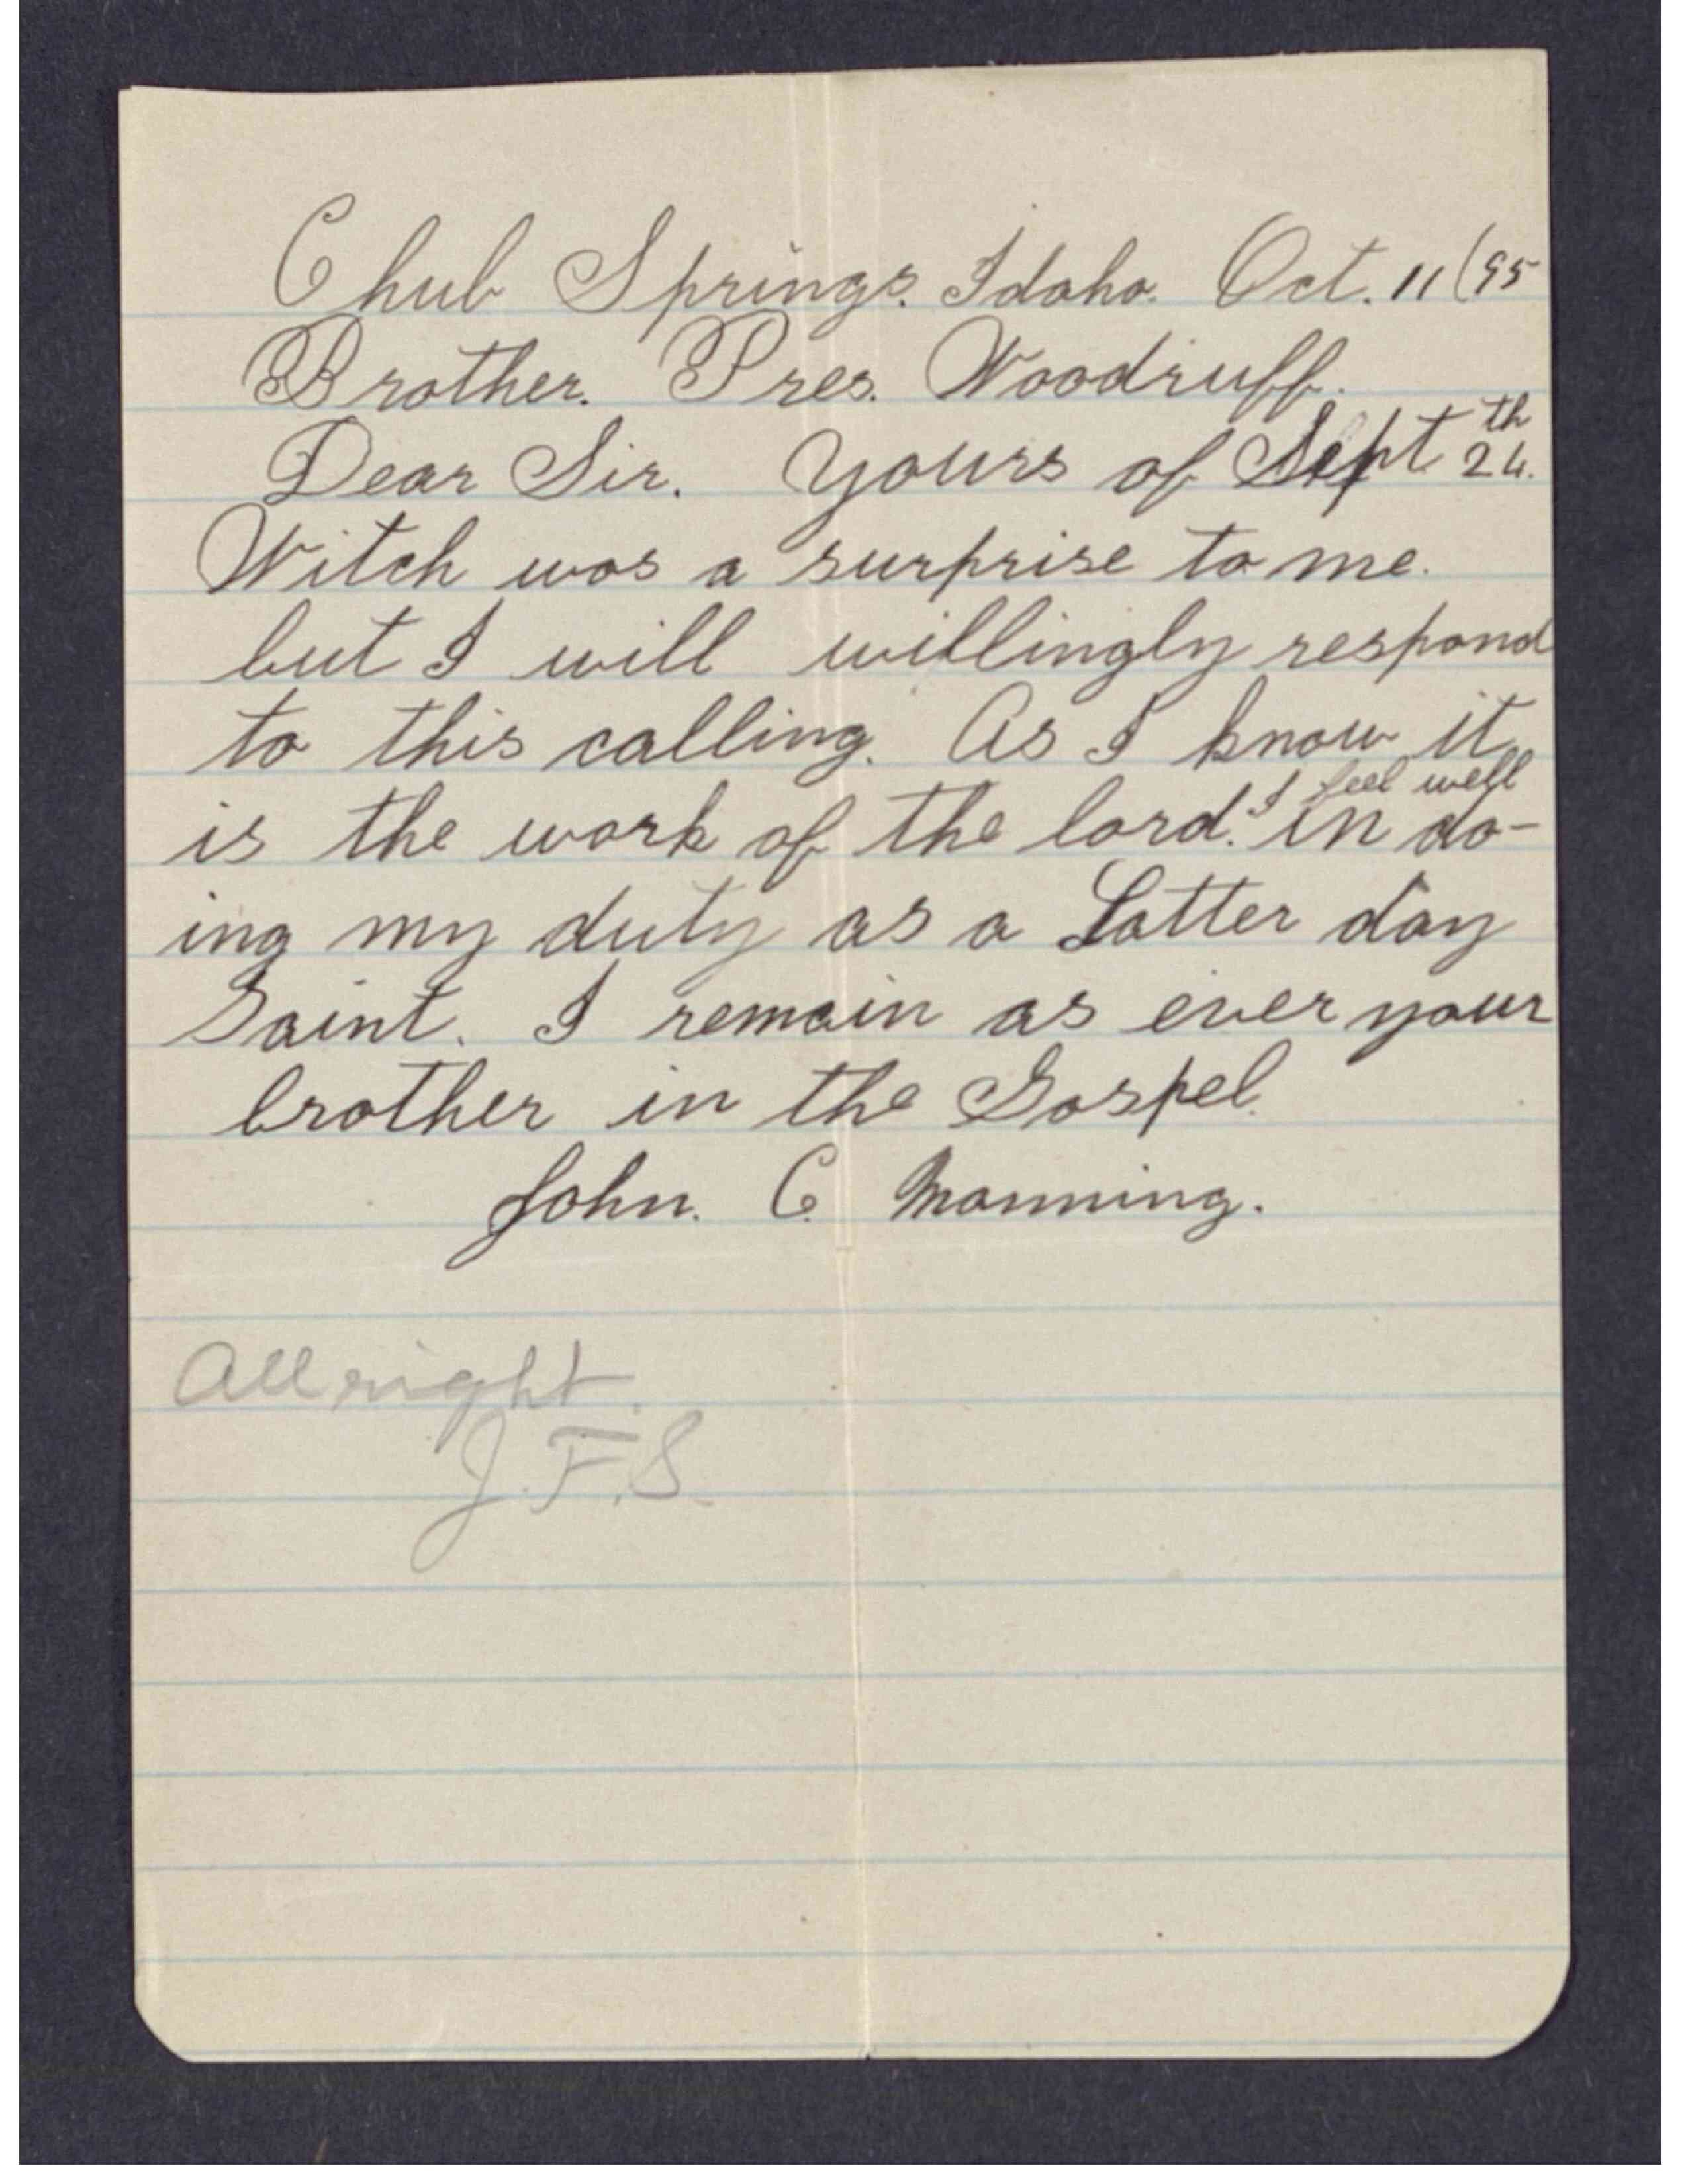 Chub Springs. Idaho. Oct. 11/95
Brother. Pres. Woodruff.
Dear Sir. Yours of Sept. 24th.
Witch was a surprise to me.
but I will willingly respond
to this calling. As I know it
is the work of the lord. I feel well in do-
ing my duty as a Latter day
Saint. I remain as ever your
brother in the Gospel.
John. C. Manning.
All right.
J.F.S.